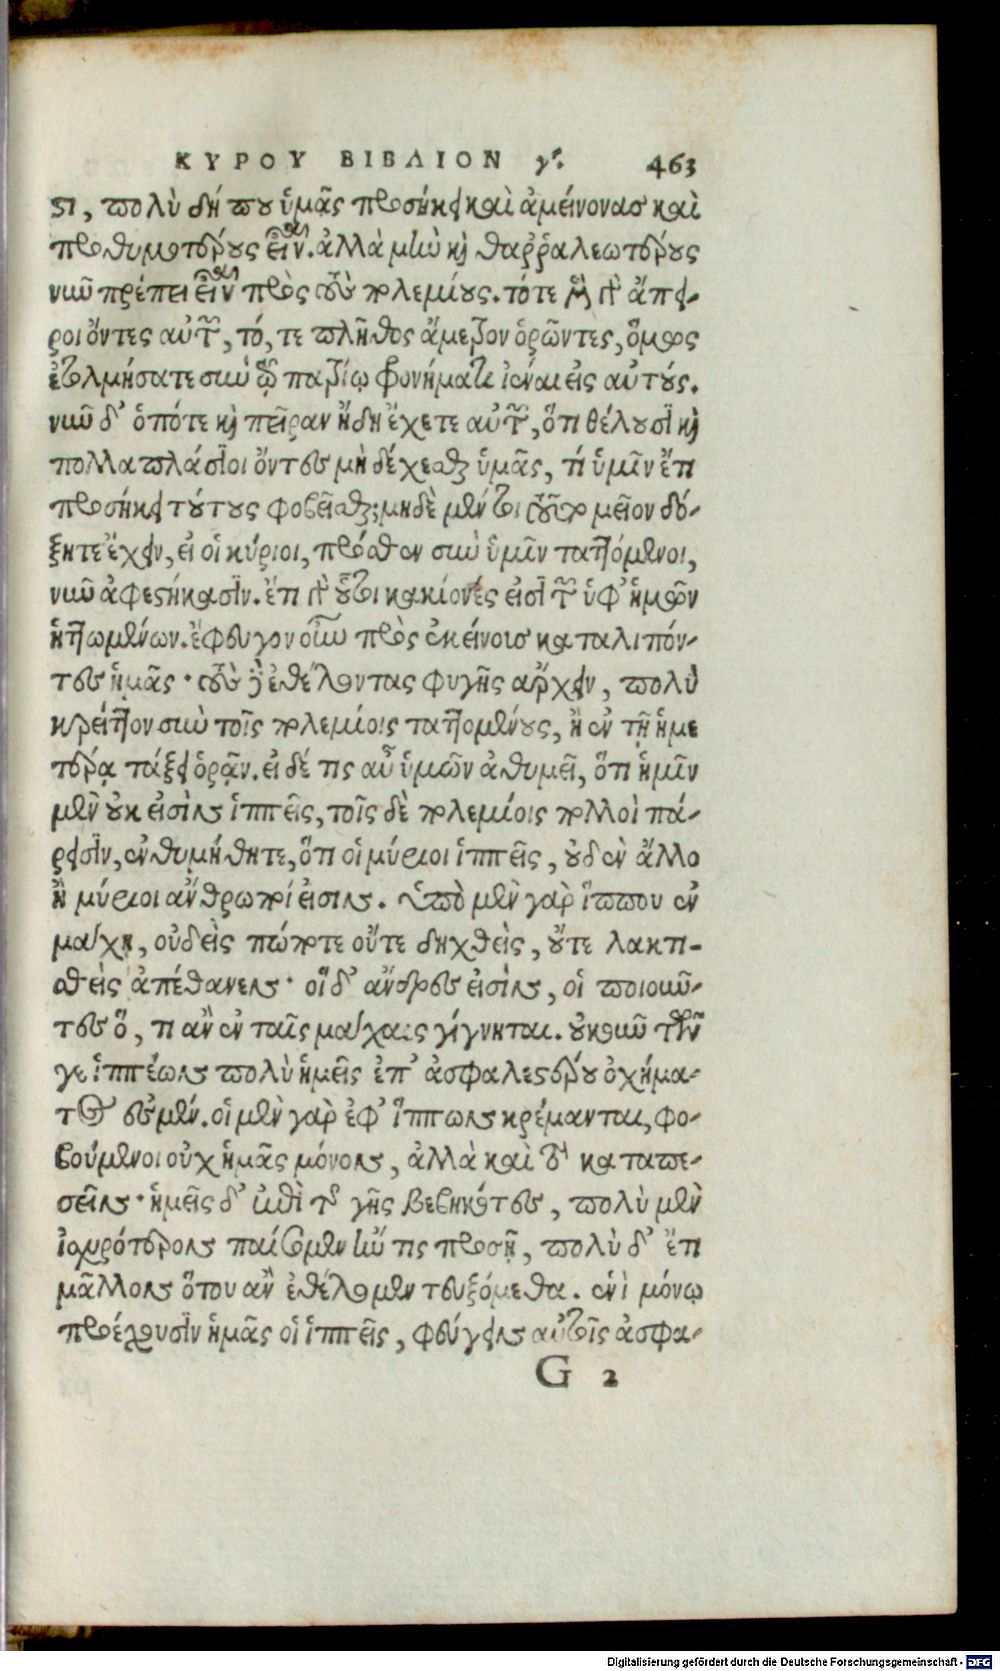 ΚΥΡΟΥ ΒΙΒΛΙΟΝ γ΄. 463
στι, πολὺ δή που ὑμᾶς προσήκει καὶ ἀμείνονας καὶ
προθυμοτέρους εἶναι. ἀλλὰ μὴν καὶ θαῤῥαλεωτέρους
νῦν πρέπει εἶναι πρὸς τοὺς πολεμίους. τότε μὲν γὰρ ἄπει-
ροι ὄντες αὐτῶν, τό, τε πλῆθος ἄμετρον ὁρῶντες, ὅμως
ἐτολμήσατε σὺν τῷ πατρίῳ φρονήματι ἰέναι εἰς αὐτούς.
νῦν δ' ὁπότε καὶ πεῖραν ἤδη ἔχετε αὐτῶν, ὅτι θέλουσι καὶ
πολλαπλάσιοι ὄντες μὴ δέχεσθαι ὑμᾶς, τί ὑμῖν ἔτι
προσήκει τούτους φοβεῖσθαι; μηδὲ μέν τοι τοῦτο μεῖον δό-
ξητε ἔχειν, εἰ οἱ κύριοι, πρόσθεν σὺν ὑμῖν ταττόμενοι,
νῦν ἀφεστήκασιν. ἔτι γὰρ οὗτοι κακίονές εἰσι τῶν ὑφ' ἡμῶν
ἡττωμένων. ἔφευγον οὖν πρὸς ἐκείνους καταλιπόν-
τες ἡμᾶς· τοὺς γὰρ ἐθέλοντας φυγῆς ἄρχειν, πολὺ
κρεῖττον σὺν τοῖς πολεμίοις ταττομένους, ἢ ἐν τῇ ἡμε
τέρᾳ τάξει ὁρᾷν. εἰ δέ τις αὖ ὑμῶν ἀθυμεῖ, ὅτι ἡμῖν
μὲν οὐκ εἰσὶν ἱππεῖς, τοῖς δὲ πολεμίοις πολλοὶ πά-
ρεισιν, ἐνθυμήθητε, ὅτι οἱ μύριοι ἱππεῖς, οὐδὲν ἄλλο
ἢ μύριοι ἄνθρωποί εἰσιν. ὑπὸ μὲν γὰρ ἵππου ἐν
μάχῃ, οὐδεὶς πώποτε οὔτε δηχθεὶς, οὔτε λακτι-
σθεὶς ἀπέθανεν· οἱ δ' ἄνδρες εἰσὶν, οἱ ποιοῦν-
τες ὅ, τι ἂν ἐν ταῖς μάχαις γίγνηται. οὐκοῦν τῶν
γε ἱππέων πολὺ ἡμεῖς ἐπ' ἀσφαλεστέρου ὀχήμα-
τος ἐσμέν. οἱ μὲν γὰρ ἐφ' ἵππων κρέμανται, φο-
βούμενοι οὐχ ἡμᾶς μόνον, ἀλλὰ καὶ τὸ καταπε-
σεῖν· ἡμεῖς δ' ἐπὶ τῆς γῆς βεβηκότες, πολὺ μὲν
ἰσχυρότερον παίσομεν ἤν τις προσῇ, πολὺ δ' ἔτι
μᾶλλον ὅτου ἂν ἐθέλομεν τευξόμεθα. ἑνὶ μόνῳ
προέχουσιν ἡμᾶς οἱ ἱππεῖς, φεύγειν αὐτοῖς ἀσφα-
G 2
Digitalisierung gefördert durch die Deutsche Forschungsgemeinschaft - DFG